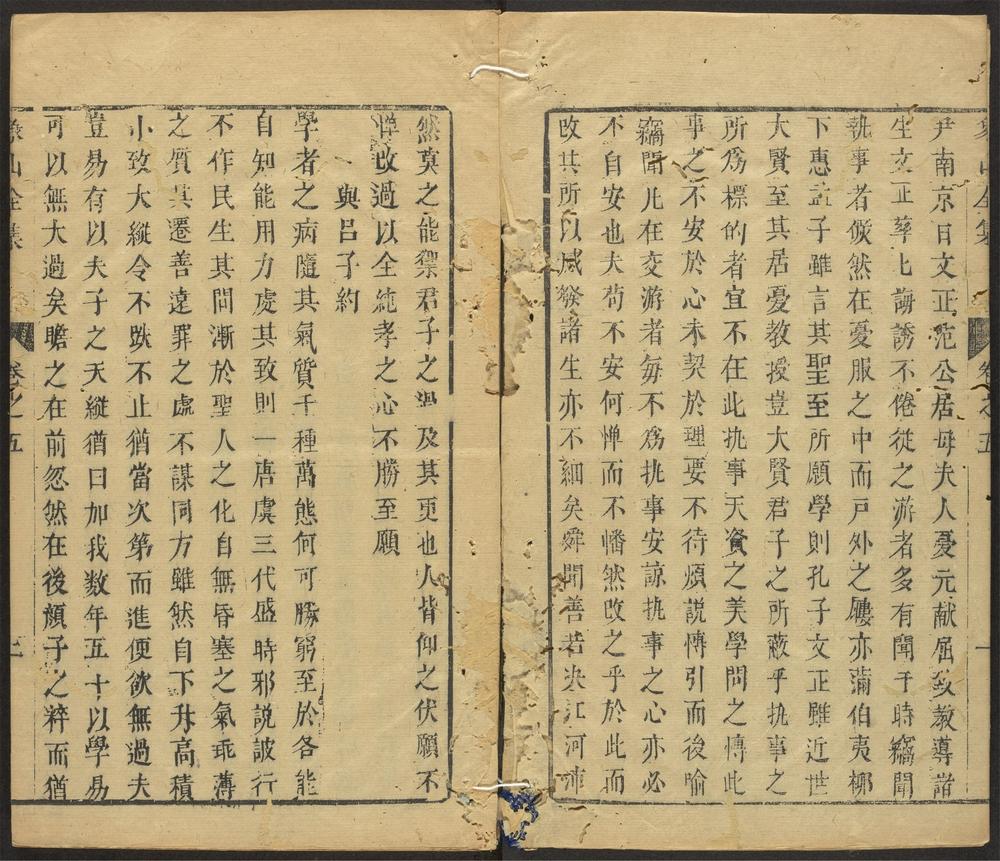 象山全集 卷之五
尹南京日文正范公居母夫人憂元献屈致教導諸
生文正孳七誨誘不倦從之游者多有聞于時竊聞
執事者儼然在憂服之中而戸外之屨亦滿伯夷柳
下惠孟子雖言其聖至所願學則孔子文正雖近世
大賢至其居憂教授豈大賢君子之所蔽乎执事之
所爲標的者宜不在此执事天資之美學問之博此
事之不安於心未契於理要不待煩説博引而後喻
竊聞凡在交游者毎不爲执事安諒执事之心亦必
不自安也夫苟不安何憚而不幡然改之乎於此而
改其所以感發諸生亦不細矣舜聞善若决江河沛
然莫之能禦君子之過及其更也人皆仰之伏願不
憚改過以全純孝之心不勝至願
與呂子約
學者之病隨其氣質千種萬態何可勝窮至於各能
自知能用力處其致則一唐虞三代盛時邪説詖行
不作民生其間漸於聖人之化自無昏塞之氣乖薄
之質其遷善遠罪之處不謀同方雖然自下升高積
小致大縱令不跌不止猶當次第而進便欲無過夫
豈易有以夫子之天縱猶曰加我数年五十以學易
可以無大過矣瞻之在前忽然在後顔子之粹而猶
象山全集 卷之五